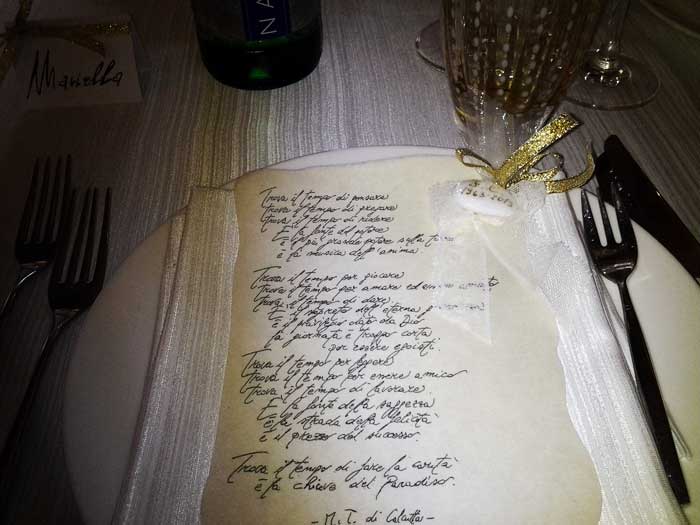 Mariella
NA
1963-2013
Trova il tempo di pensare
trova il tempo di pregare
trova il tempo di ridere
È la fonte del potere
è il più grande potere sulla terra
è la musica dell'anima.
Trova il tempo per giocare
Trova il tempo per amare ed essere amato
Trova il tempo di dare
È il segreto dell'eterna
è il privilegio dato da Dio
la giornata è troppo corta
per essere egoisti.
Trova il tempo per leggere
Trova il tempo per essere amico
Trova il tempo di lavorare.
È la fonte della saggezza
è la strada della felicità
è il prezzo del successo.
Trova il tempo di fare la carità
è la chiave del Paradiso.
- M.T. di Calcutta -